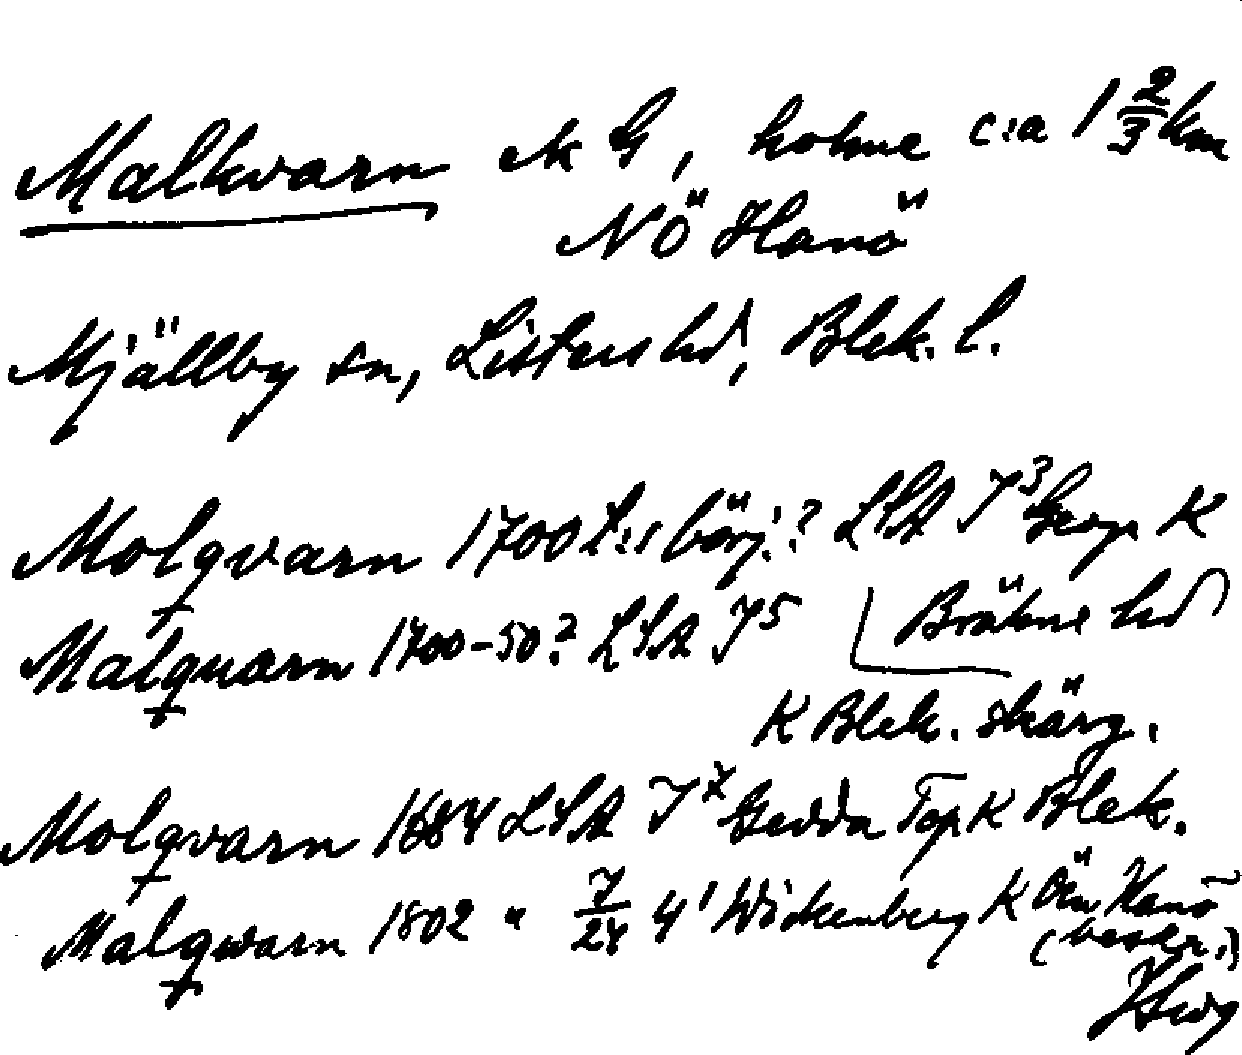 Malkvarn N G, holme c:a 1 2/3 km
NÖ Hanö
Mjällby sn, Listers hd, Blek. l.
Molqvarn 1700 t:s börj.? LSA J3 Geogr K
Malquarn 1700-50? LSA J5 Bräkne hd
K Blek. skärg.
Molqvarn 1684 LSA J7 Gedda Top K Blek.
Malqwarn 1802 " 7/24 4' Wickenberg K Ön Hanö
(beskr.)